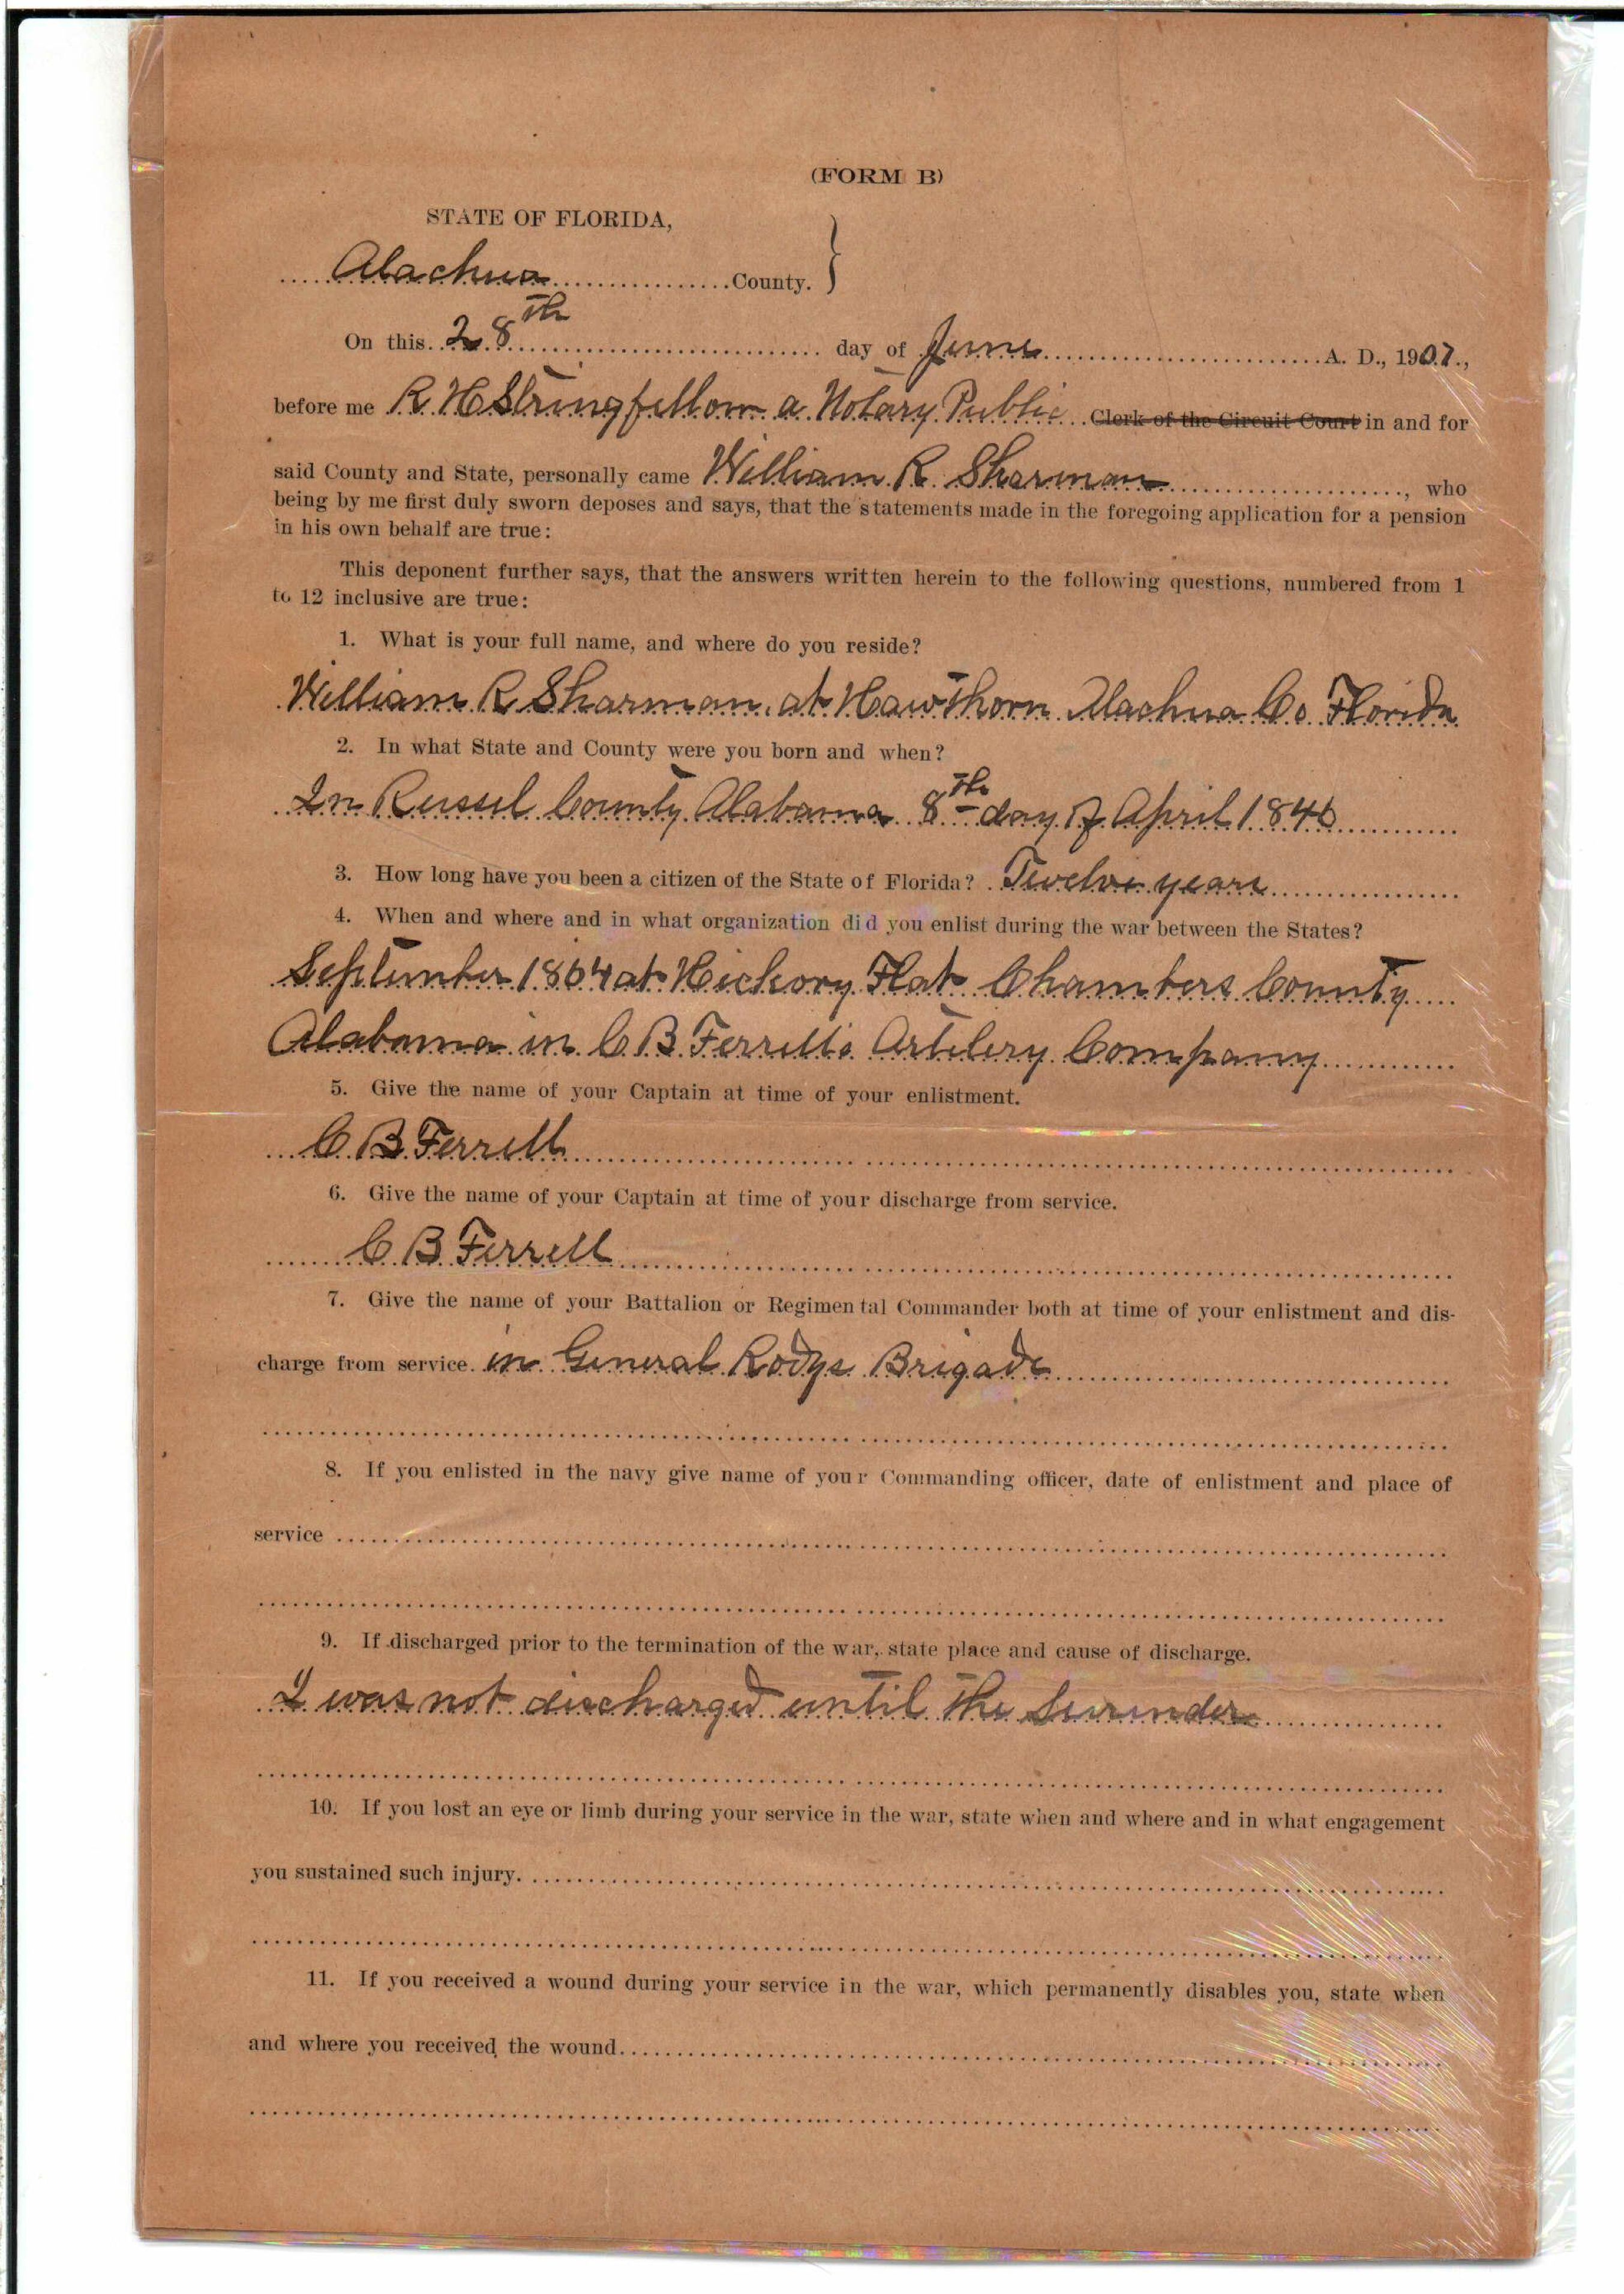 (FORM B)
STATE OF FLORIDA,
Alachua County. }
On this 28th day of June A. D., 1907,
before me R H Stringfellow a Notary Public Clerk of the Circuit Court in and for
said County and State, personally came William R. Sharman, who
being by me first duly sworn deposes and says, that the statements made in the foregoing application for a pension
in his own behalf are true:
This deponent further says, that the answers written herein to the following questions, numbered from 1
to 12 inclusive are true:
1. What is your full name, and where do you reside?
William R Sharman, at Hawthorn Alachua Co Florida
2. In what State and County were you born and when?
In Russel County Alabama 8th day of April 1846
3. How long have you been a citizen of the State of Florida? Twelve years
4. When and where and in what organization did you enlist during the war between the States?
September 1864 at Hickory Flat Chambers County
Alabama in C B Ferrells Artilery Company
5. Give the name of your Captain at time of your enlistment.
C B Ferrell
6. Give the name of your Captain at time of your discharge from service.
C B Ferrell
7. Give the name of your Battalion or Regimental Commander both at time of your enlistment and dis-
charge from service. in General Rodys Brigade
8. If you enlisted in the navy give name of your Commanding officer, date of enlistment and place of
service
9. If discharged prior to the termination of the war, state place and cause of discharge.
I was not discharged until the Surender
10. If you lost an eye or limb during your service in the war, state when and where and in what engagement
you sustained such injury.
11. If you received a wound during your service in the war, which permanently disables you, state when
and where you received the wound.